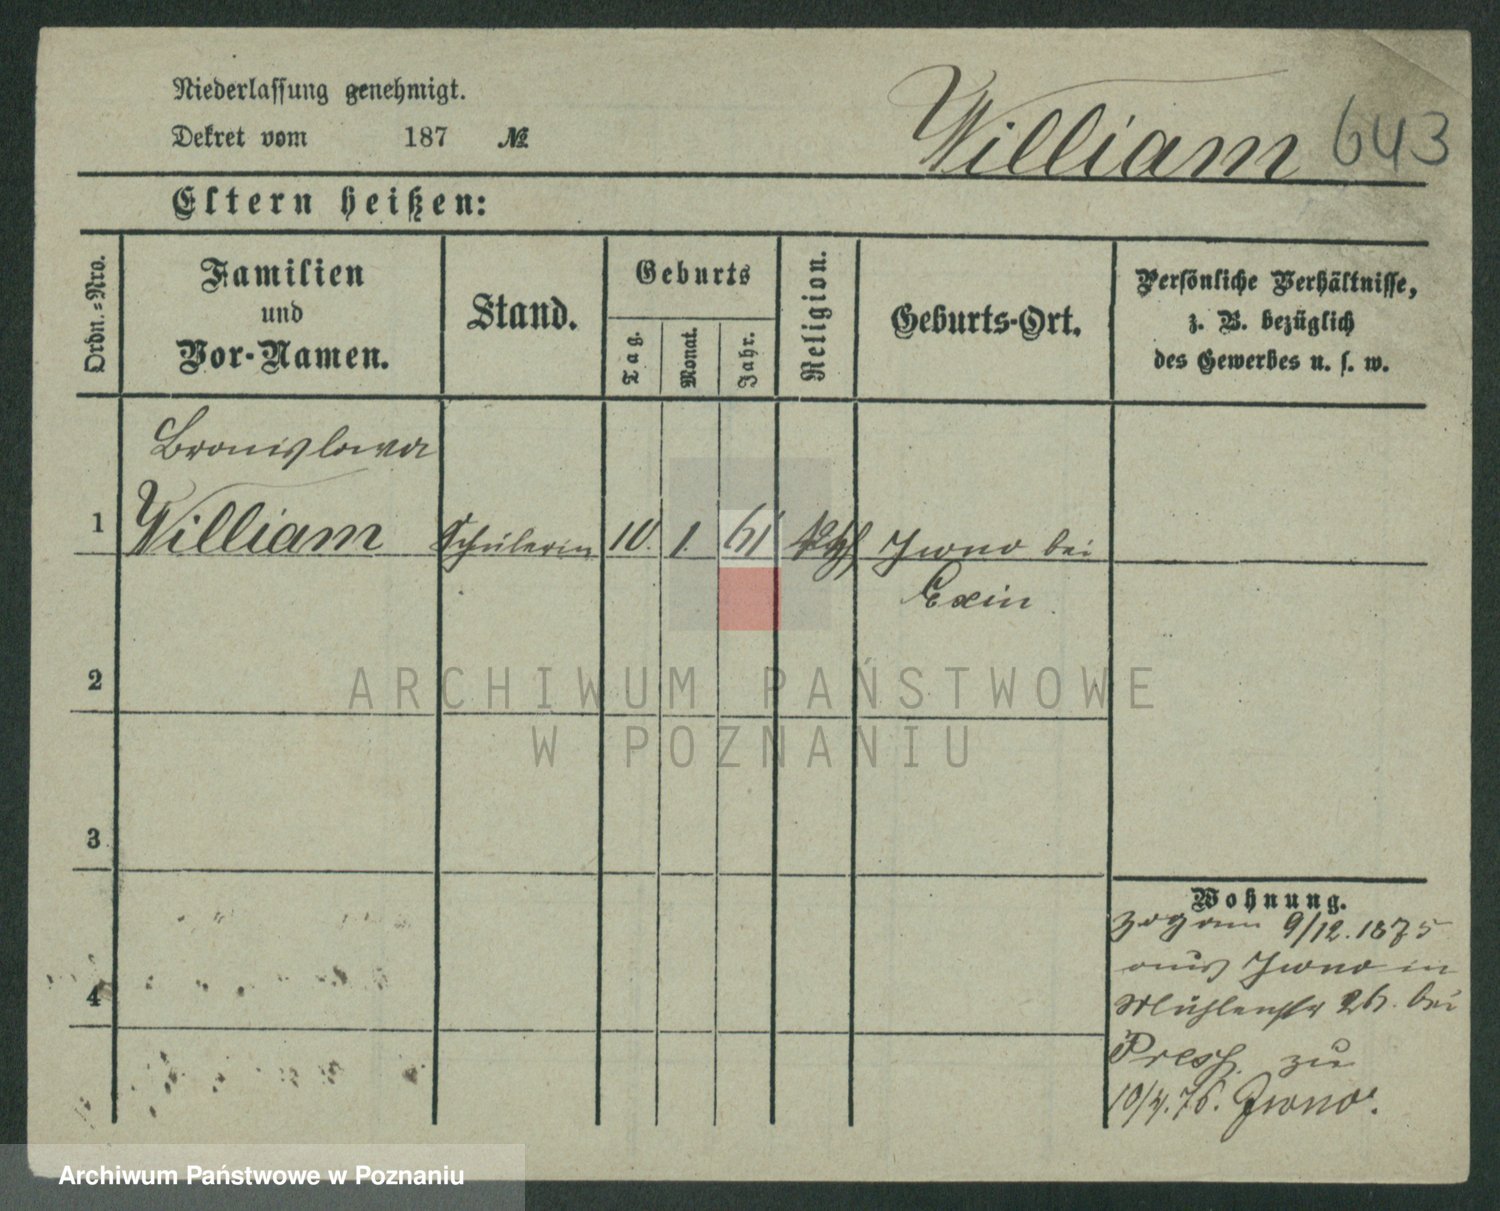 Niederlassung genehmigt.
Dekret vom 187 №
William 643
Eltern heißen:
Ordn.=Nro.
Familien
und
Vor-Namen.
Stand.
Geburts
Tag.
Monat.
Jahr.
Religion.
Geburts-Ort.
Persönliche Verhältnisse,
z. B. bezüglich
des Gewerbes u. s. w.
Bronislawa
1 William Schülerin 10. 1. 61 Iwno bei
Exin
2
3
4
Wohnung.
zog am 9/12.1875
aus Iwno in
Mühlenstr 26. bei
zu
10/4.76. Iwno.
ARCHIWUM PAŃSTWOWE
W POZNANIU
Archiwum Państwowe w Poznaniu